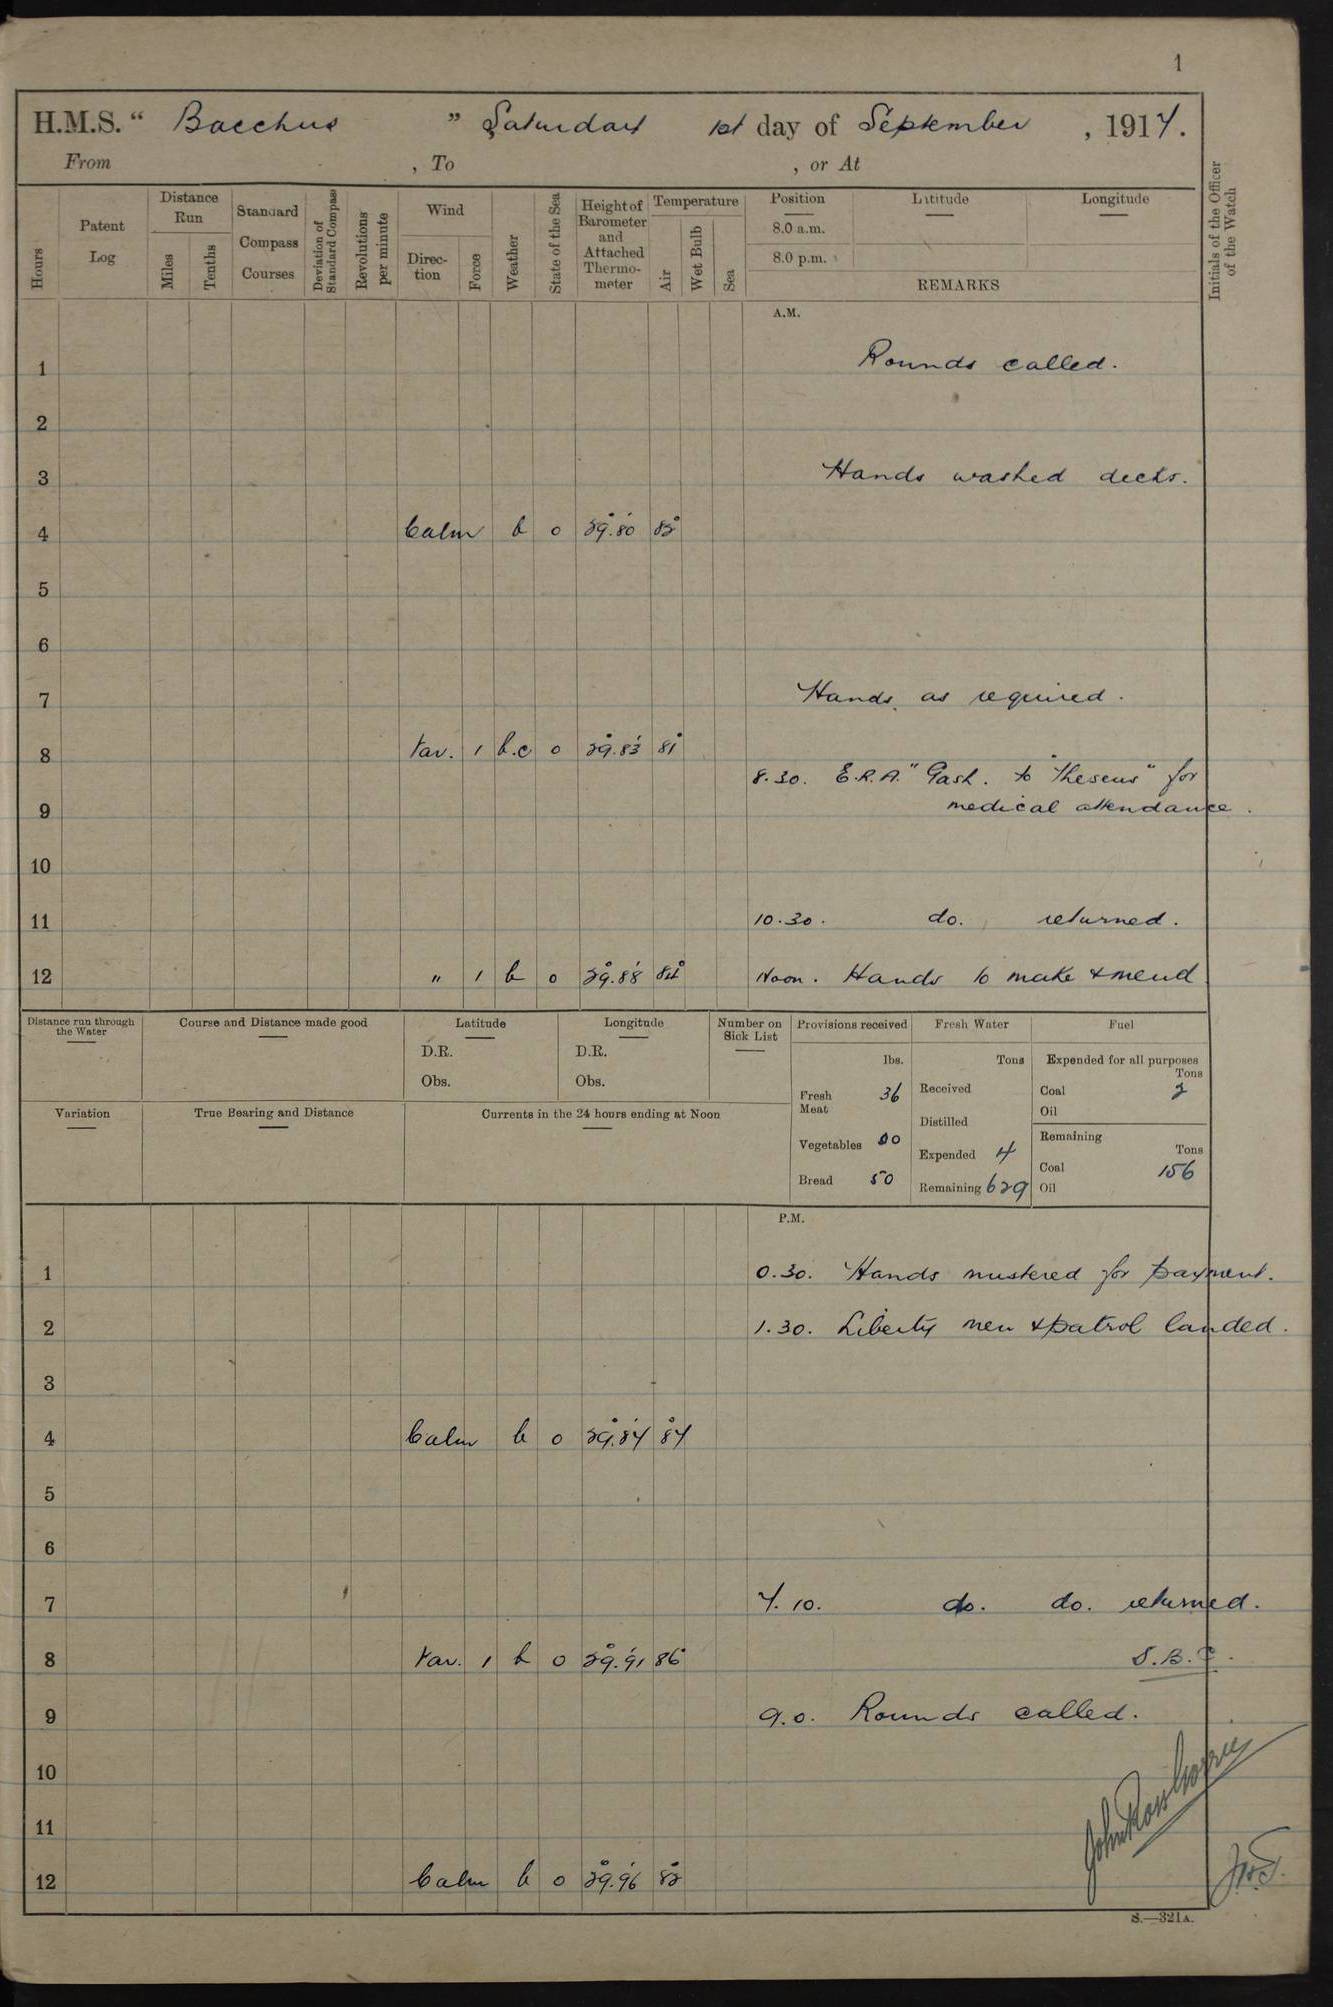 1
H.M.S. " Bacchus " Saturday 1st day of September , 1917.
From , To , or At
Hours
Patent Log
Distance Run
Miles
Tenths
Standard Compass Courses
Deviation of Standard Compass
Revolutions per minute
Wind
Direction
Force
Weather
State of the Sea
Height of Barometer and Attached Thermometer
Temperature
Air
Wet Bulb
Sea
Position Latitude Longitude
8.0 a.m.
8.0 p.m.
REMARKS
Initials of the Officer of the Watch
A.M.
1 Rounds called.
2
3 Hands washed decks.
4 Calm b 0 29.80 82
5
6
7 Hands as required.
8 Var. 1 b.c 0 29.83 81
8.30. E.R.A. " Gash. to "Theseus" for
9 medical attendance.
10
11 10.30. do. returned.
12 " 1 b 0 29.88 84 Noon. Hands to make & mend
Distance run through the Water
Course and Distance made good
Latitude
D.R.
Obs.
Longitude
D.R.
Obs.
Number on Sick List
Provisions received
lbs.
Fresh Meat 36
Vegetables
Bread 50
Fresh Water
Tons
Received
Distilled
Expended 4
Remaining 629
Fuel
Expended for all purposes
Tons
Coal 2
Oil
Remaining
Tons
Coal 156
Oil
Variation
True Bearing and Distance
Currents in the 24 hours ending at Noon
P.M.
1 0.30. Hands mustered for payment.
2 1.30. Liberty men & patrol landed.
3
4 Calm b 0 29.87 87
5
6
7 7.10. do. do. returned.
8 Var. 1 b 0 29.91 86 S.B.C.
9 9.0. Rounds called.
10
11
12 Calm b 0 29.96 82
S.—321A.